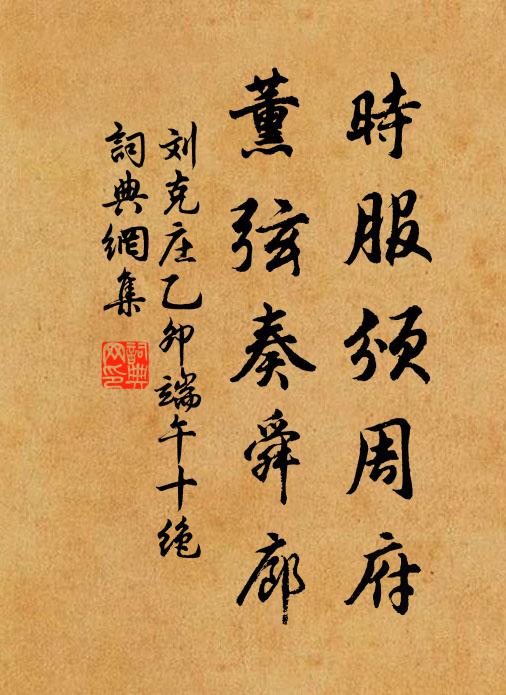 時服頒周府
薰弦奏舜廊
刘克庄乙卯端午十绝
詞典網集
詞典網印